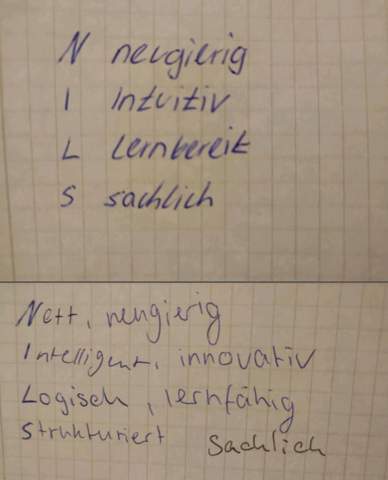 N neugierig
I Intuitiv
L Lernbereit
S sachlich
Nett, neugierig
Intelligent, innovativ
Logisch, lernfähig
Strukturiert Sachlich